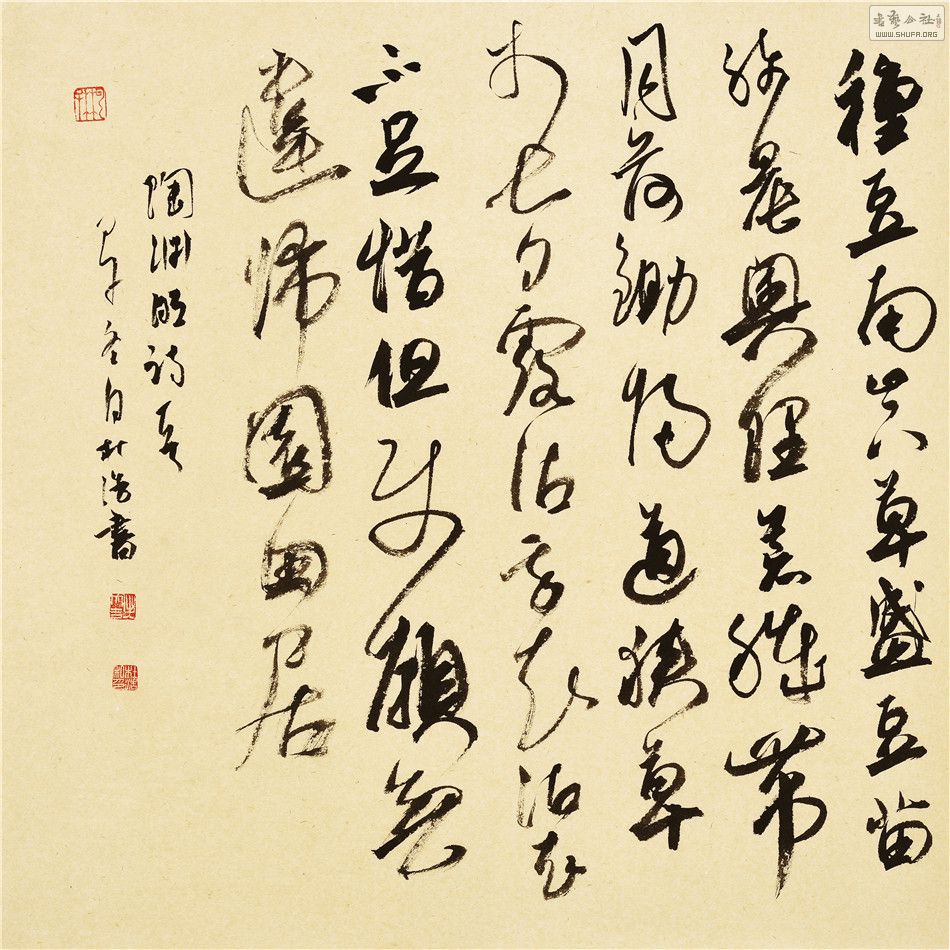 種豆南山下草盛豆苗
稀晨興理荒穢帶
月荷鋤歸道狹草
木長夕露沾我衣沾衣
不足惜但使願無
違歸園田居
陶淵明詩
冬月杜浩書
書藝公社
WWW.SHUFA.ORG